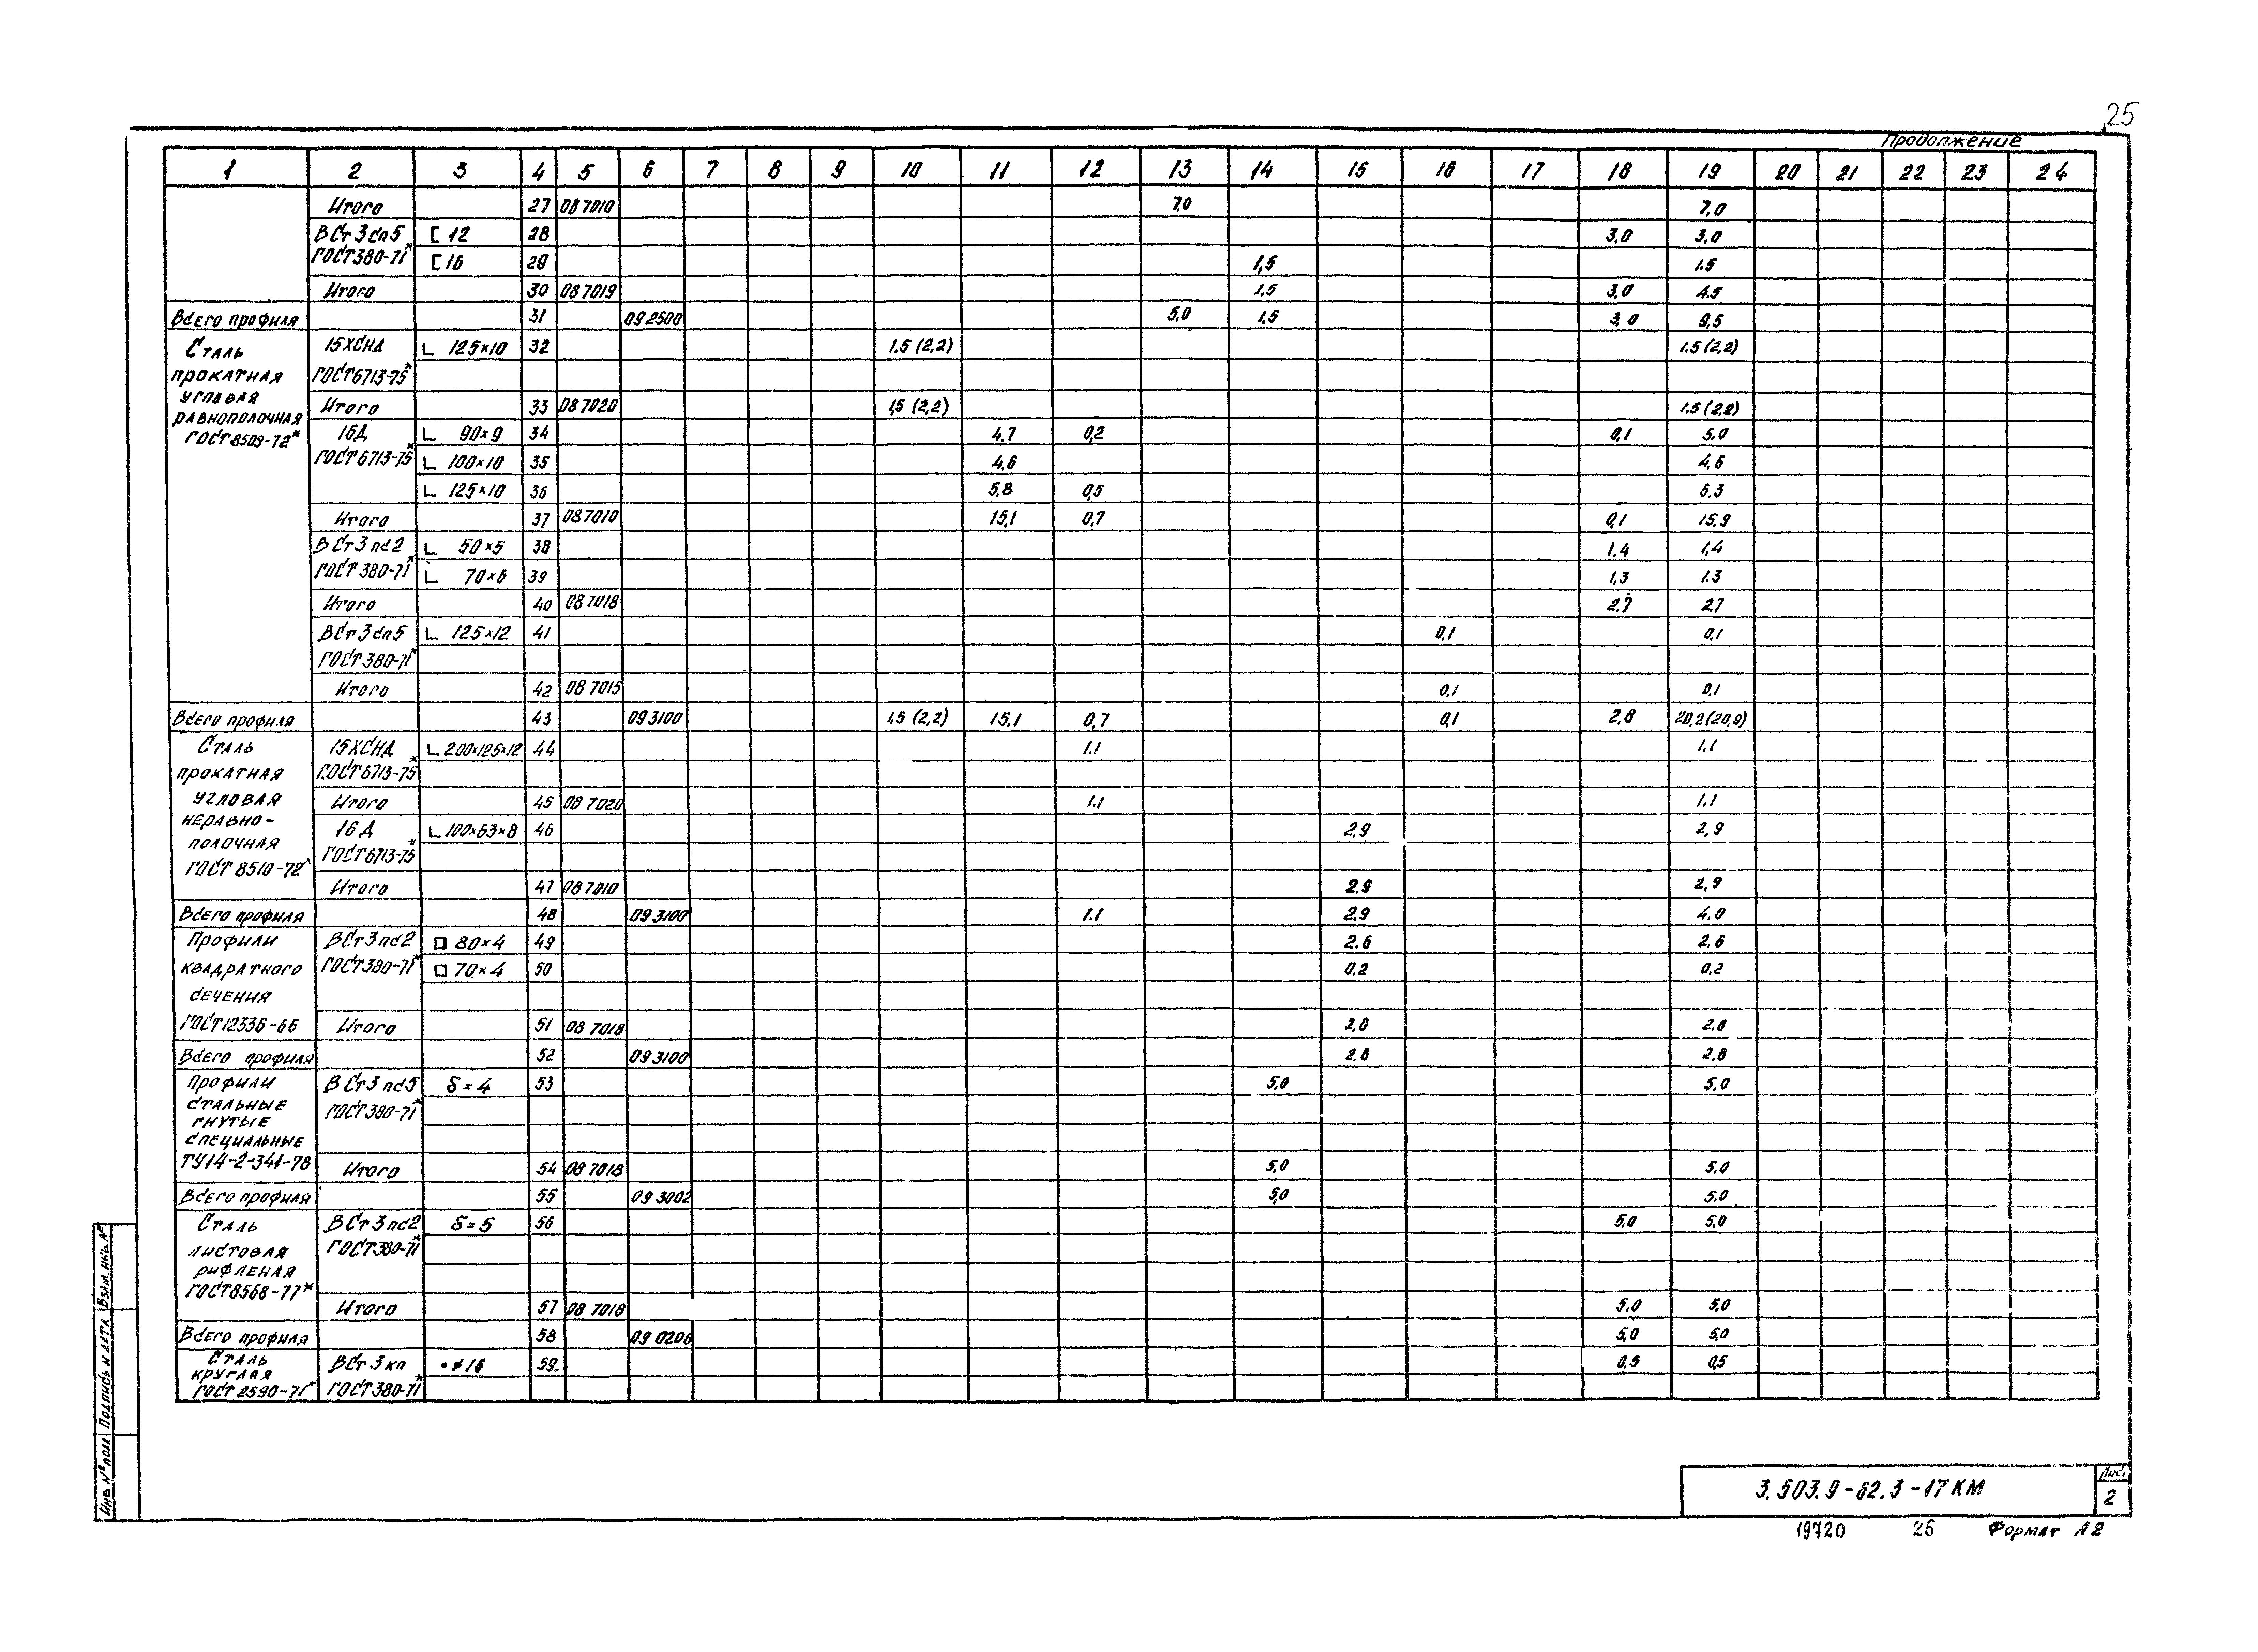 25
Продолжение
1 2 3 4 5 6 7 8 9 10 11 12 13 14 15 16 17 18 19 20 21 22 23 24
Итого 27 087010 7,0 7,0
ВСт3сп5 [ 12 28 3,0 3,0
ГОСТ380-71* [ 16 29 1,5 1.5
Итого 30 087019 1.5 3,0 4.5
Всего профиля 31 092500 5,0 1,5 3,0 9,5
Сталь 15ХСНД L 125×10 32 1.5 (2,2) 1.5 (2,2)
прокатная ГОСТ6713-75*
угловая Итого 33 087020 1,5 (2,2) 1.5 (2,2)
равнополочная 16Д L 90×9 34 4.7 0,2 0,1 5.0
ГОСТ8509-72* ГОСТ6713-75* L 100×10 35 4.6 4.6
L 125×10 36 5.8 0,5 6.3
Итого 37 087010 15,1 0.7 0,1 15,9
ВСт3пс2 L 50×5 38 1.4 1,4
ГОСТ380-71* L 70×6 39 1,3 1.3
Итого 40 087018 2.7 2,7
ВСт3сп5 L 125×12 41 0,1 0,1
ГОСТ380-71*
Итого 42 087015 0,1 0,1
Всего профиля 43 093100 1,5 (2,2) 15.1 0,7 0,1 2,8 20,2(20,9)
Сталь 15ХСНД L 200×125×12 44 1.1 1.1
прокатная ГОСТ6713-75*
угловая Итого 45 087020 1.1 1.1
неравно-
полочная 16Д L 100×63×8 46 2.9 2,9
ГОСТ 8510-72* ГОСТ6713-75*
Итого 47 087010 2.9 2,9
Всего профиля 48 093100 1.1 2.9 4.0
Профили ВСт3пс2 □ 80×4 49 2.6 2.6
квадратного ГОСТ380-71* □ 70×4 50 0.2 0.2
сечения
ГОСТ12336-66 Итого 51 087018 2,0 2.8
Всего профиля 52 093100 2.8 2.8
Профили ВСт3пс5 δ=4 53 5,0 5,0
стальные ГОСТ380-71*
гнутые
специальные
ТУ14-2-341-78 Итого 54 087018 5,0 5.0
Всего профиля 55 093002 5,0 5.0
Сталь ВСт3пс2 δ=5 56 5,0 5,0
листовая ГОСТ380-71*
рифленая
ГОСТ8568-77*
Итого 57 087018 5,0 5,0
Всего профиля 58 090206 5,0 5,0
Сталь ВСт3кп • ⌀16 59. 0,5 0,5
круглая
ГОСТ2590-71* ГОСТ380-71*
Инв. № подл Подпись и дата Взам. инв. №
3.503.9-62.3-17КМ
Лист
2
19720 26 Формат А2